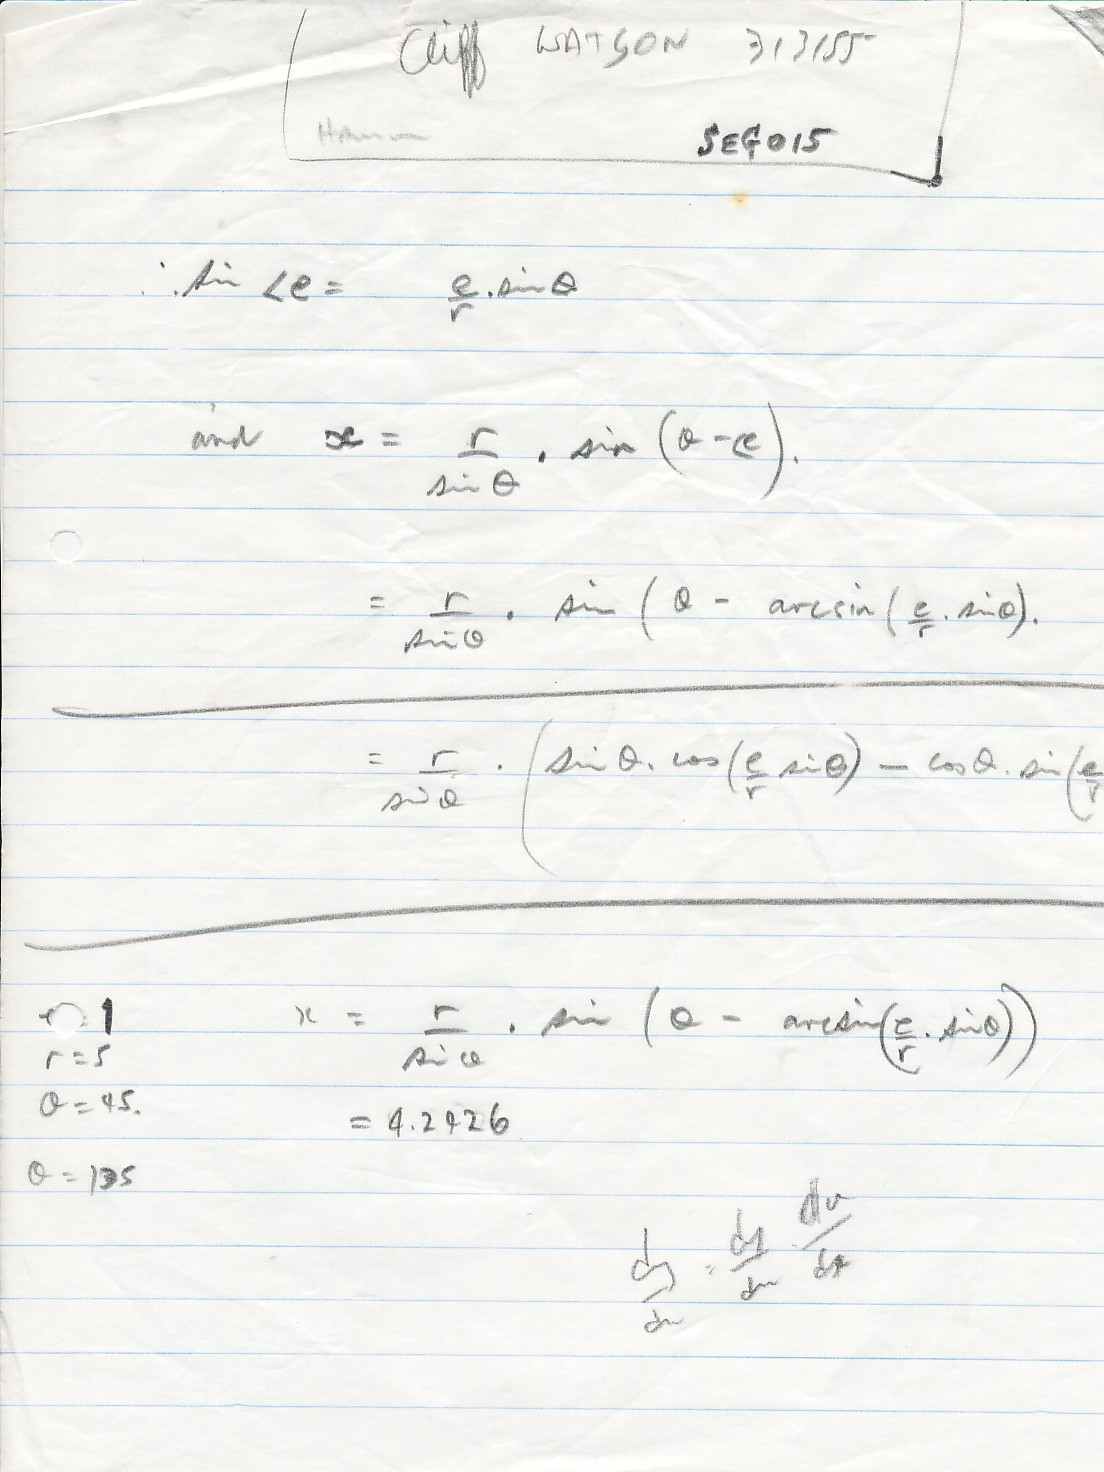 Cliff WATSON 313155
SEG015
∴ sin ∠e = e/r . sin θ
and x = r/sin θ . sin (θ - ∠e).
= r/sin θ . sin (θ - arcsin (e/r . sin θ).
= r/sin θ . (sin θ . cos (e/r sin θ) - cos θ . sin (e/r
1
r = 5
θ = 45.
θ = 135
x = r/sin θ . sin (θ - arcsin (e/r . sin θ))
= 4.2426